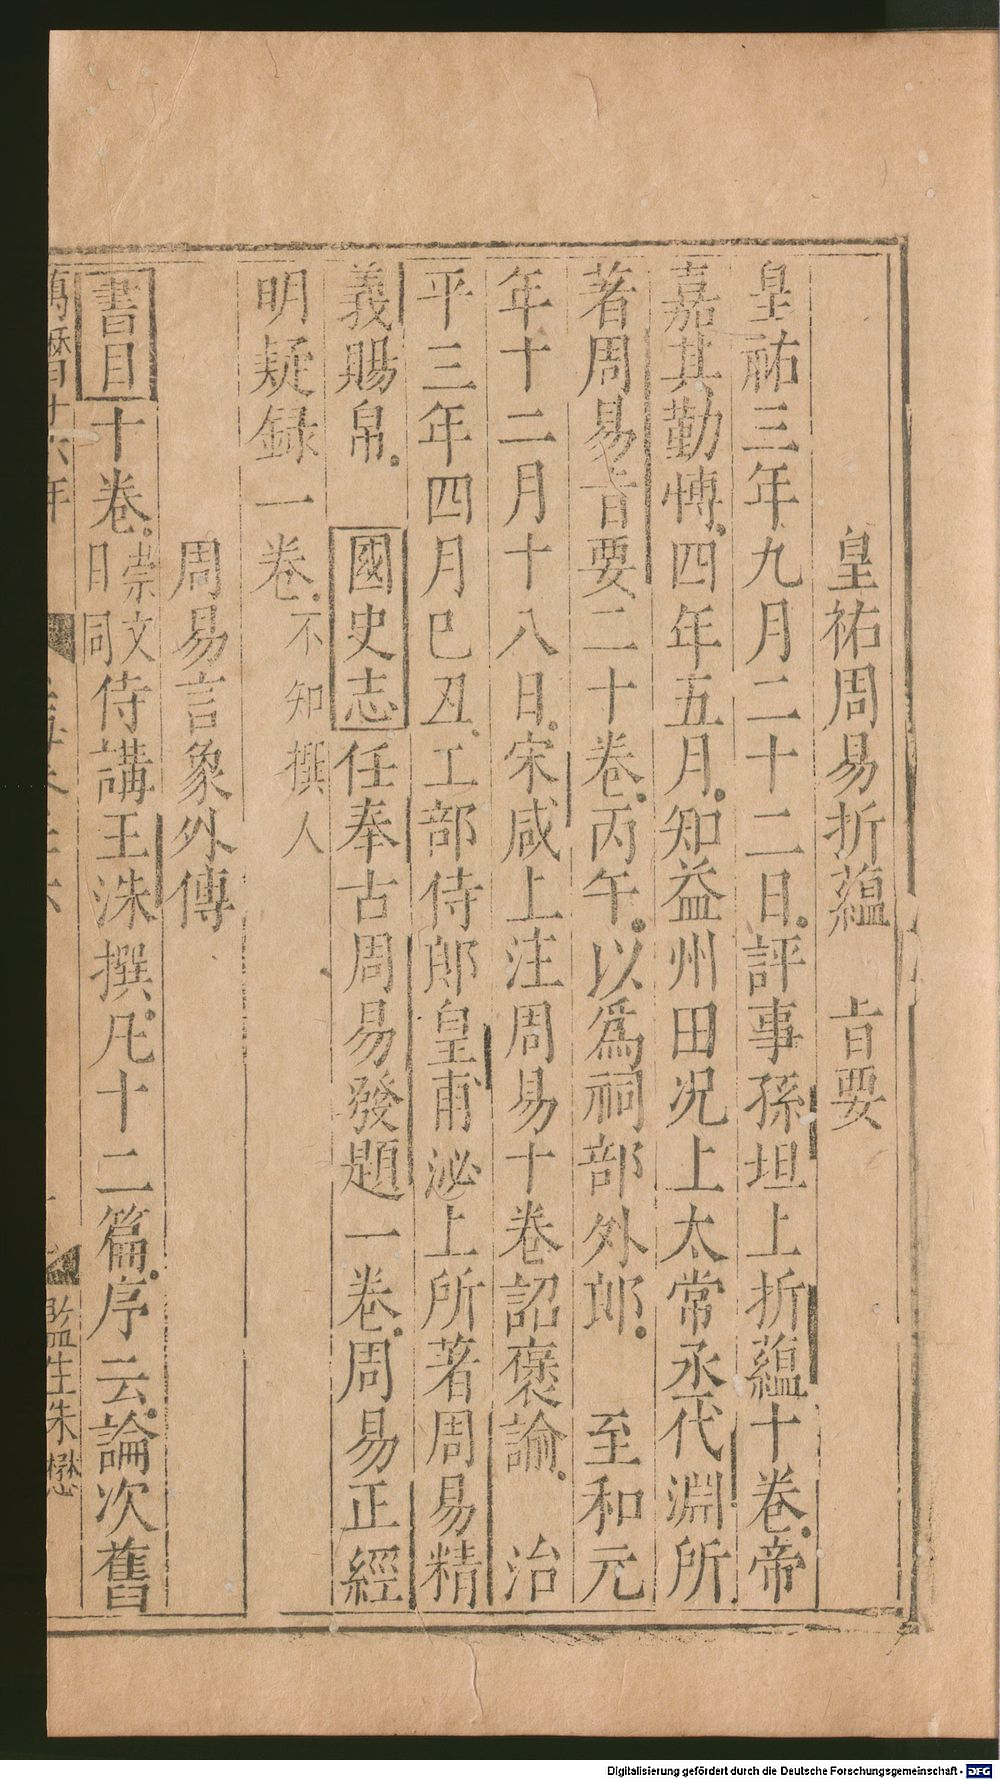 皇祐周易折蘊　㫖要
皇祐三年九月二十二日評事孫坦上折蘊十卷帝
嘉其勤愽四年五月知益州田况上太常丞代淵所
著周易㫖要二十卷丙午以爲祠部外郎　至和元
年十二月十八日宋咸上注周易十卷詔褒諭　治
平三年四月巳丑工部侍郎皇甫泌上所著周易精
義賜帛　國史志任奉古周易發題一卷周易正經
明疑録一卷不知撰人
周易言象外傳
書目十卷崇文
目同侍講王洙撰凡十二篇序云論次舊
萬曆十六年
監生朱懋
Digitalisierung gefördert durch die Deutsche Forschungsgemeinschaft - DFG